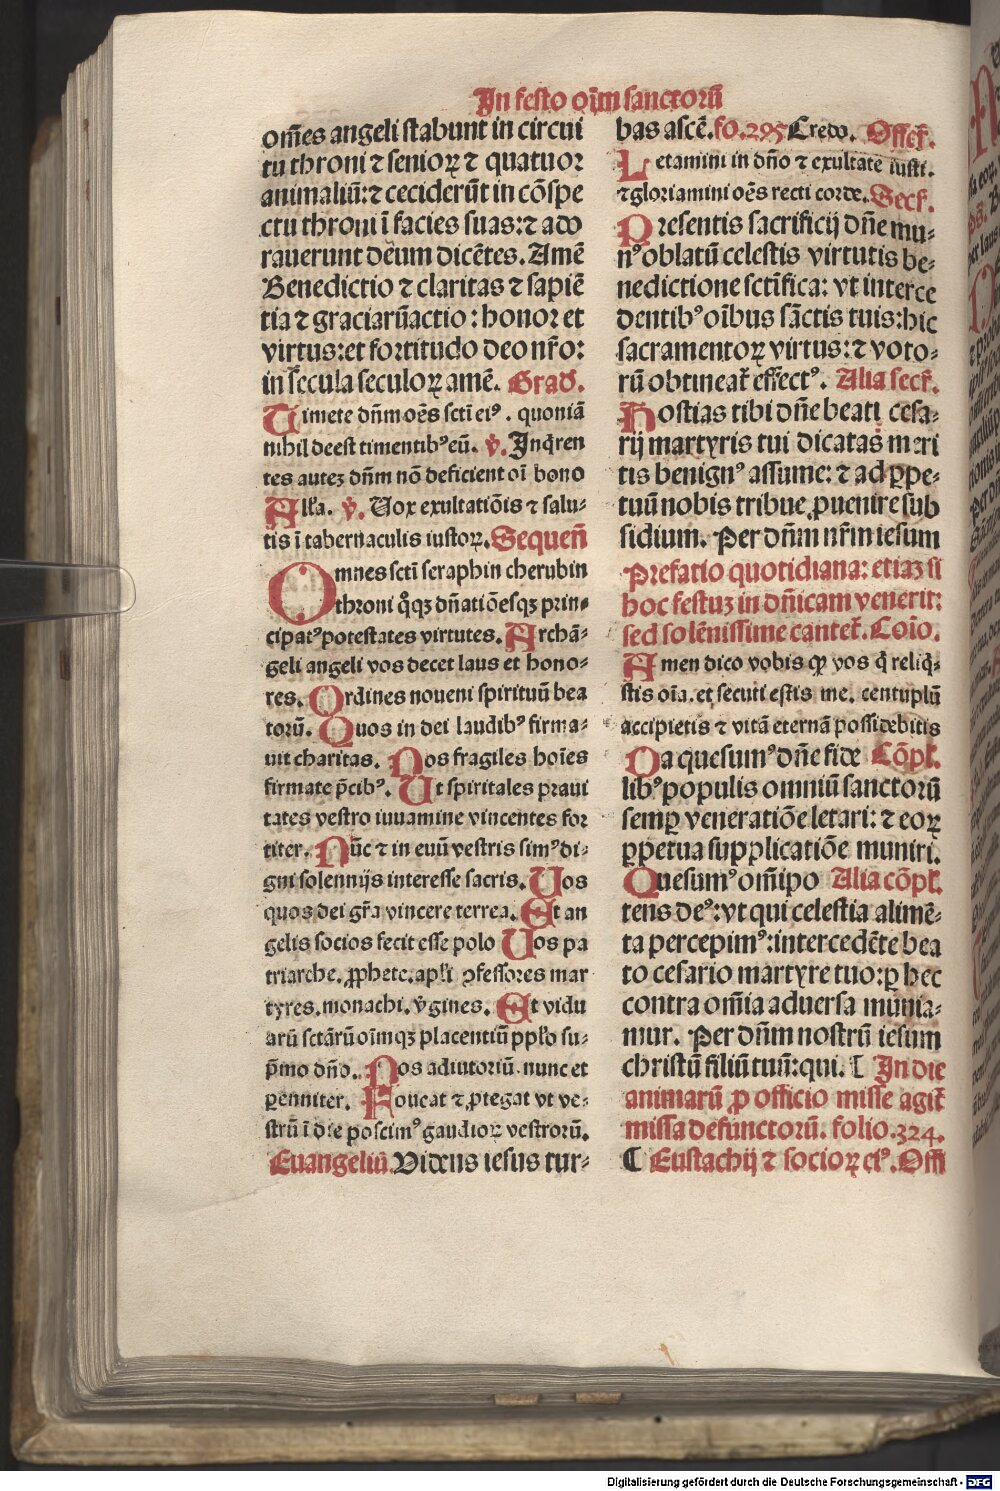 In festo oīm sanctorū
om̄es angeli stabunt in circui
tu throni ⁊ senioꝝ ⁊ quatuor
animaliū:⁊ ceciderūt in cōspe
ctu throni ī facies suas:⁊ ado
rauerunt deum dicētes. Amē
Benedictio ⁊ claritas ⁊ sapiē
tia ⁊ graciarūactio: honor et
virtus:et fortitudo deo nr̄o:
in secula seculoꝝ amē. Grad.
Timete dn̄m oēs sctī eiꝰ. quoniā
nihil deest timentibꝰ eū. ℣. Inq̄ren
tes autez dn̄m nō deficient oī bono
Alła. ℣. Uox exultatiōis ⁊ salu-
tis ī tabernaculis iustoꝝ. Sequen̄
Omnes sctī seraphin cherubin
throni q̊qꝫ dn̄atiōesqꝫ prin-
cipatꝰ potestates virtutes. Archā-
geli angeli vos decet laus et hono-
res. Ordines noueni spirituū bea
torū. Quos in dei laudibꝰ firma-
uit charitas. Nos fragiles hoīes
firmate p̄cibꝰ. Ut spiritales praui
tates vestro iuuamine vincentes for
titer. Nūc ⁊ in euū vestris simꝰ di-
gni solennijs interesse sacris. Uos
quos dei gr̄a vincere terrea. Et an
gelis socios fecit esse polo Uos pa
triarche. ꝓphete. apłi ꝯfessores mar
tyres. monachi. v̄gines. Et vidu
arū sctārū oīmqꝫ placentiū ppło su-
p̄mo dn̄o. Nos adiutoriū nunc et
ꝑenniter. Foueat ⁊ ꝓtegat vt ve-
strū ī die poscimꝰ gaudioꝝ vestrorū.
Euangeliū. Videns iesus tur-
bas ascē. fo. 295 Credo. Offer̄.
Letamini in dn̄o ⁊ exultate iusti.
⁊ gloriamini oēs recti corde. Secr̄.
Presentis sacrificij dn̄e mu-
nꝰ oblatū celestis virtutis be-
nedictione sctīfica: vt interce
dentibꝰ oībus sāctis tuis: hic
sacramentoꝝ virtus: ⁊ voto-
rū obtineat̄ effectꝰ. Alia secr̄.
Hostias tibi dn̄e beati cesa-
rij martyris tui dicatas meri
tis benignꝰ assume: ⁊ ad ꝑpe-
tuū nobis tribue ꝓuenire sub
sidium. Per dn̄m nr̄m iesum
Prefatio quotidiana: etiaꝫ si
hoc festuꝫ in dn̄icam venerit:
sed solēnissime cantet̄. Coīo.
Amen dico vobis ꝙ vos q̄ reliq̄-
stis oīa. et secuti estis me. centuplū
accipietis ⁊ vitā eternā possidebitis
Da quesumꝰ dn̄e fide Cōpł.
libꝰ populis omniū sanctorū
semꝑ veneratiōe letari: ⁊ eoꝝ
ꝑpetua supplicatiōe muniri.
Quesumꝰ om̄ipo Alia cōpł.
tens deꝰ: vt qui celestia alimē-
ta percepimꝰ: intercedēte bea
to cesario martyre tuo: ꝑ hec
contra om̄ia aduersa munia-
mur. Per dn̄m nostrū iesum
christū filiū tuū: qui. ¶ In die
animarū ꝓ officio misse agit̄
missa defunctorū. folio. 324.
¶ Eustachij ⁊ socioꝝ eiꝰ. Offi
Digitalisierung gefördert durch die Deutsche Forschungsgemeinschaft - DFG